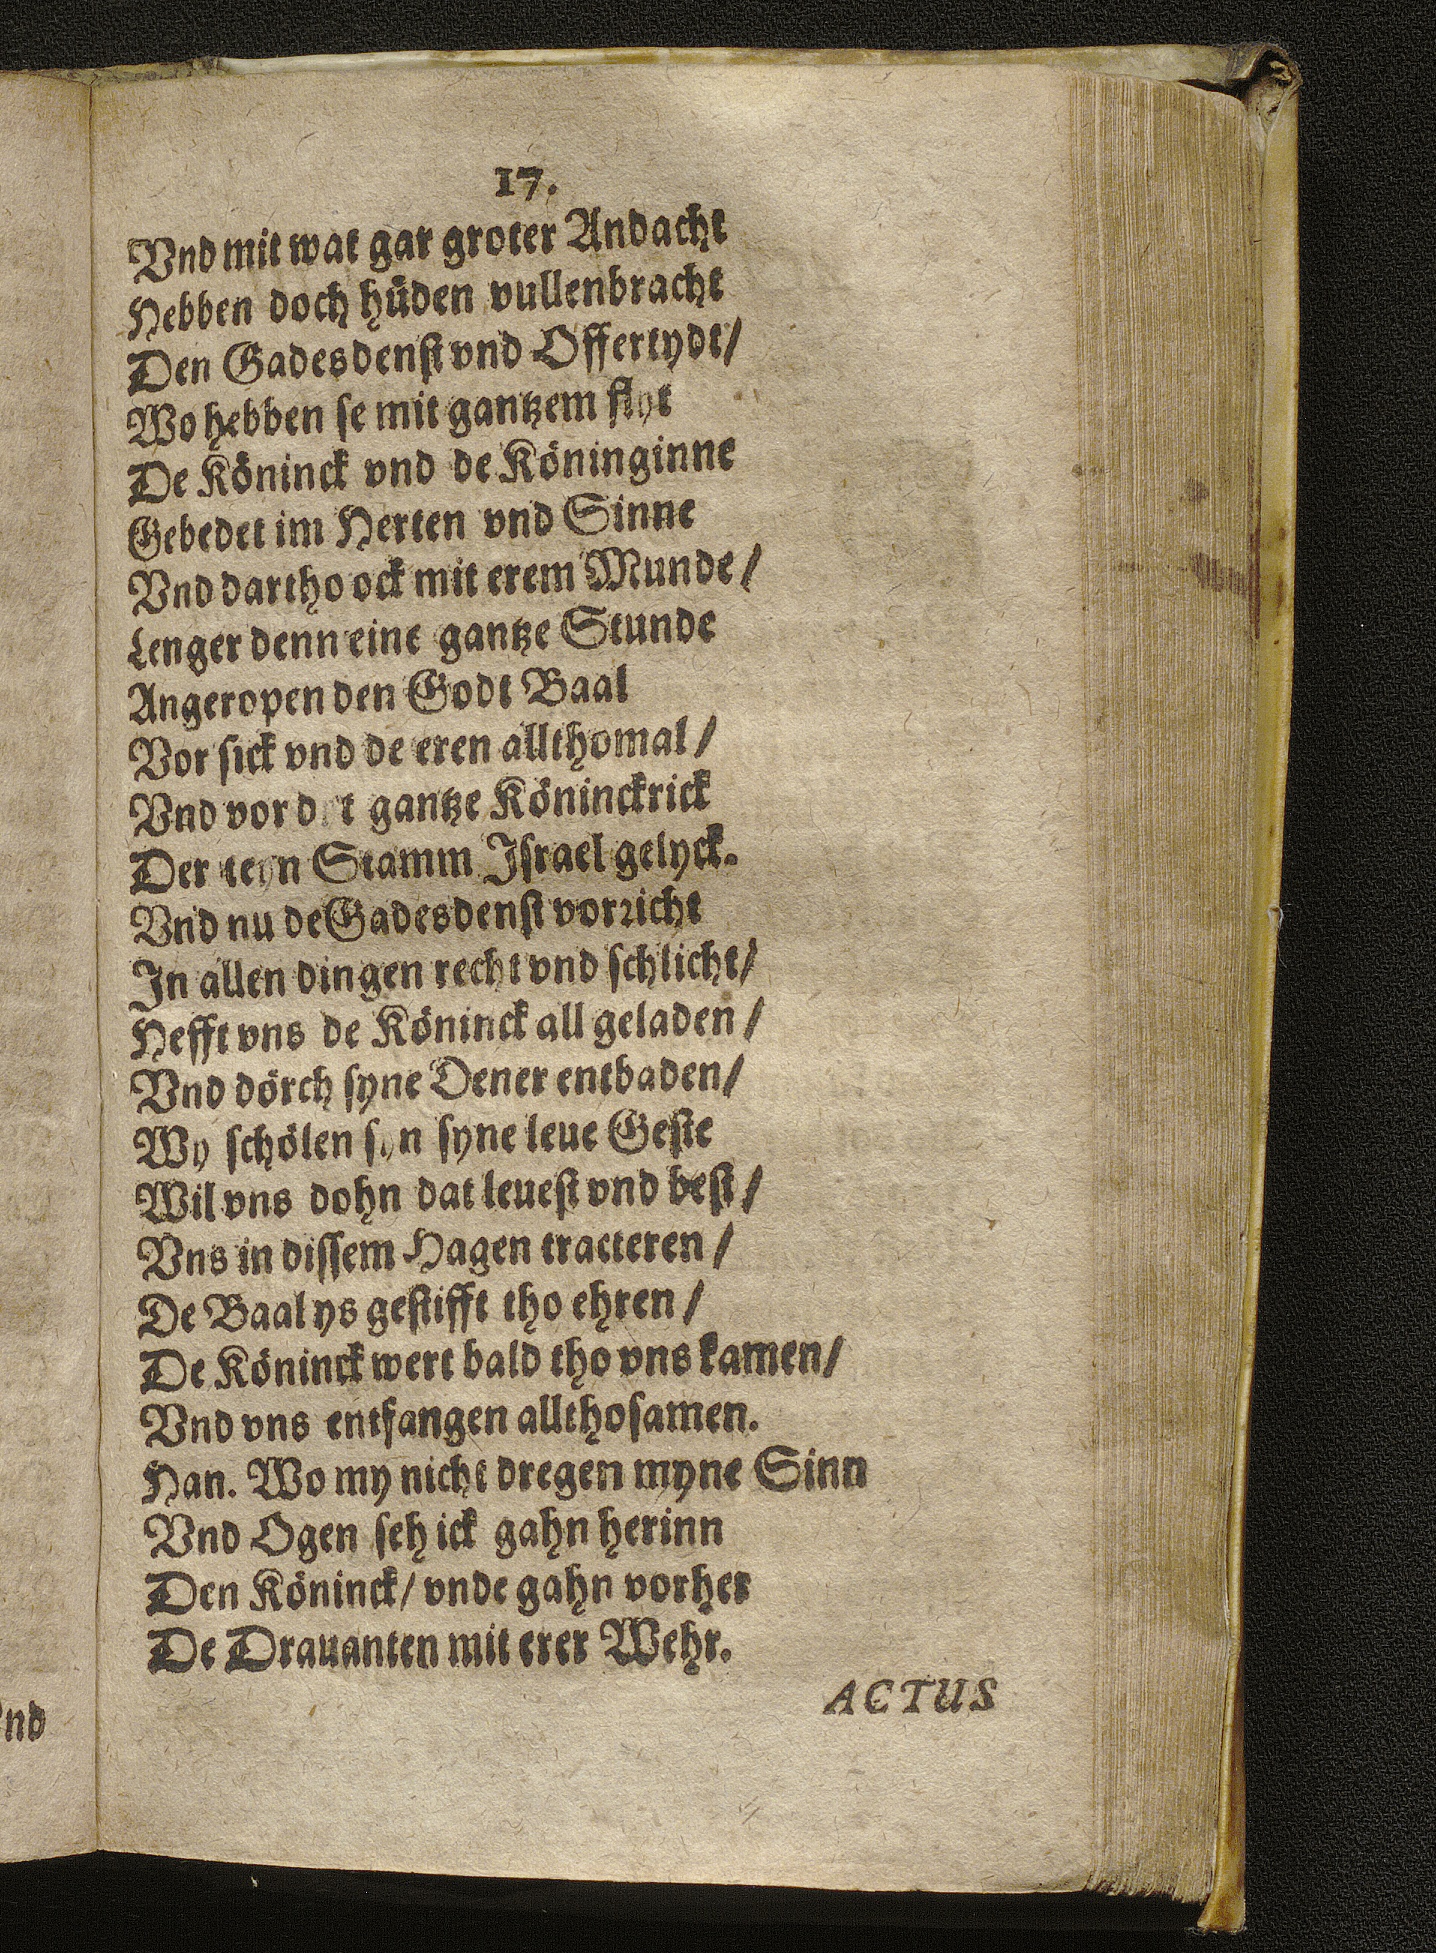 17.
Vnd mit wat gar groter Andacht
Hebben doch hüden vullenbracht
Den Gadesdenſt vnd Offertydt/
Wo hebben ſe mit gantzem flyt
De Köninck vnd de Köninginne
Gebedet im Herten vnd Sinne
Vnd dartho ock mit erem Munde/
Lenger denn eine gantze Stunde
Angeropen den Godt Baal
Vor ſick vnd de eren allthomal/
Vnd vor det gantze Köninckrick
Der teyn Stamm Iſrael gelyck.
Vnd nu de Gadesdenſt vorꝛicht
In allen dingen recht vnd ſchlicht/
Hefft vns de Köninck all geladen/
Vnd dörch ſyne Dener entbaden/
Wy ſchölen ſyn ſyne leue Geſte
Wil vns dohn dat leueſt vnd beſt/
Vns in diſſem Hagen tracteren/
De Baal ys geſtifft tho ehren/
De Köninck wert bald tho vns kamen/
Vnd vns entfangen allthoſamen.
Han. Wo my nicht dregen myne Sinn
Vnd Ogen ſeh ick gahn herinn
Den Köninck/ vnde gahn vorher
De Drauanten mit erer Wehr.
ACTUS
nd